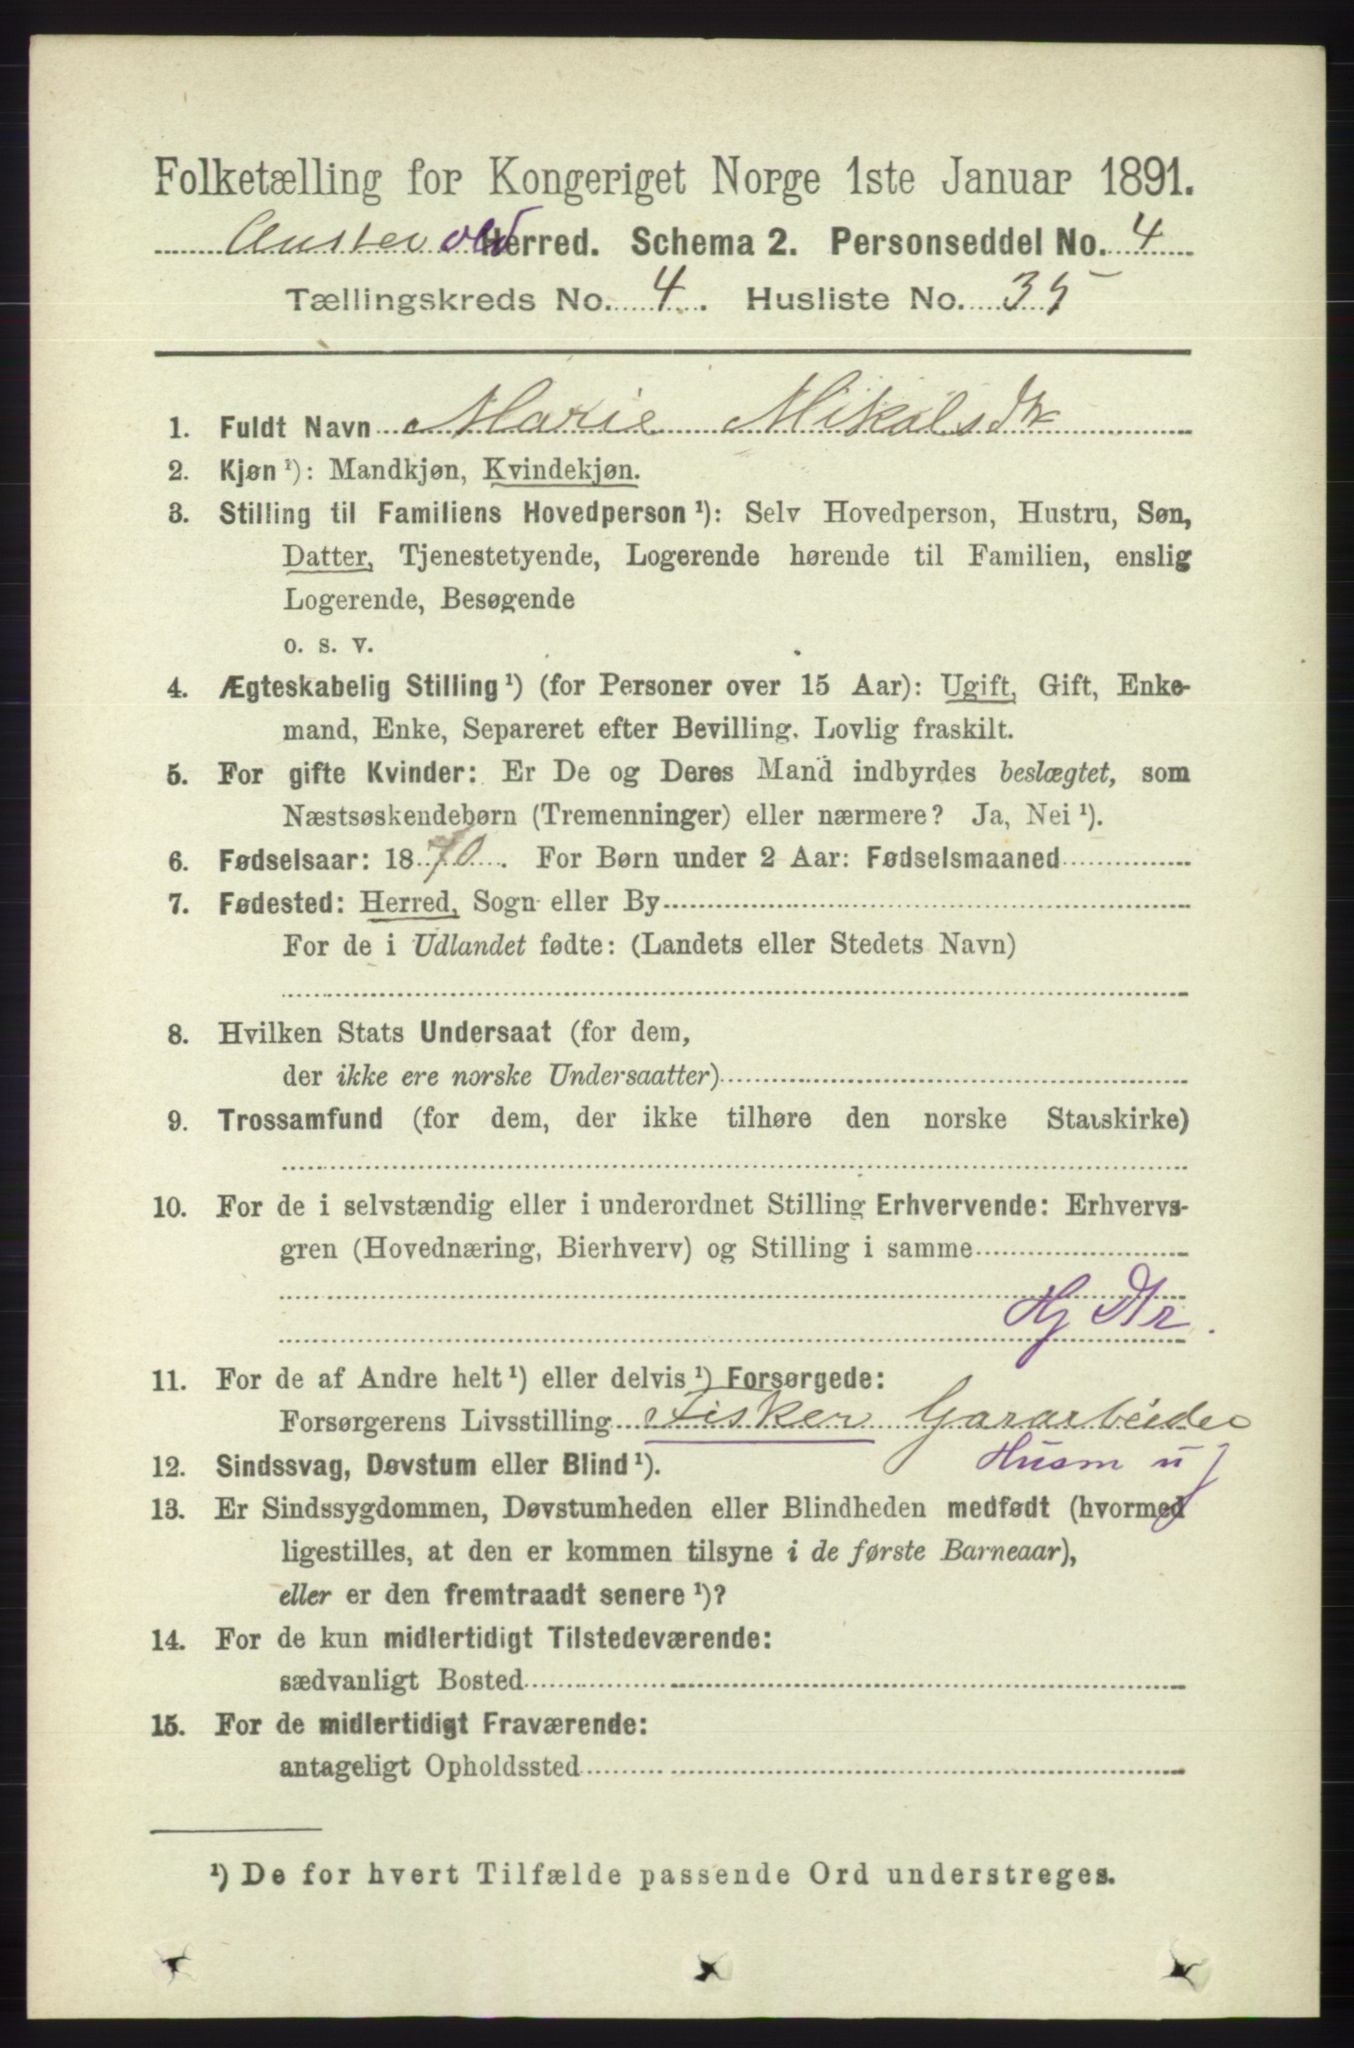 Folketælling for Kongeriget Norge 1ste Januar 1891.
Austevold Herred. Schema 2. Personseddel No. 4
Tællingskreds No. 4. Husliste No. 35
1. Fuldt Navn Marie Mikalsdtr
2. Kjøn ¹): Mandkjøn, Kvindekjøn.
3. Stilling til Familiens Hovedperson ¹): Selv Hovedperson, Hustru, Søn,
Datter, Tjenestetyende, Logerende hørende til Familien, enslig
Logerende, Besøgende
o. s. v.
4. Ægteskabelig Stilling ¹) (for Personer over 15 Aar): Ugift, Gift, Enke-
mand, Enke, Separeret efter Bevilling. Lovlig fraskilt.
5. For gifte Kvinder: Er De og Deres Mand indbyrdes beslægtet, som
Næstsøskendebørn (Tremenninger) eller nærmere? Ja, Nei ¹).
6. Fødselsaar: 1870. For Børn under 2 Aar: Fødselsmaaned
7. Fødested: Herred, Sogn eller By
For de i Udlandet fødte: (Landets eller Stedets Navn)
8. Hvilken Stats Undersaat (for dem,
der ikke ere norske Undersaatter)
9. Trossamfund (for dem, der ikke tilhøre den norske Statskirke)
10. For de i selvstændig eller i underordnet Stilling Erhvervende: Erhvervs-
gren (Hovednæring, Bierhverv) og Stilling i samme
Hj Dtr.
11. For de af Andre helt ¹) eller delvis ¹) Forsørgede:
Forsørgerens Livsstilling Fisker Gararbeider
Husm u J
12. Sindssvag, Døvstum eller Blind ¹).
13. Er Sindssygdommen, Døvstumheden eller Blindheden medfødt (hvormed
ligestilles, at den er kommen tilsyne i de første Barneaar),
eller er den fremtraadt senere ¹)?
14. For de kun midlertidigt Tilstedeværende:
sædvanligt Bosted
15. For de midlertidigt Fraværende:
antageligt Opholdssted
¹) De for hvert Tilfælde passende Ord understreges.